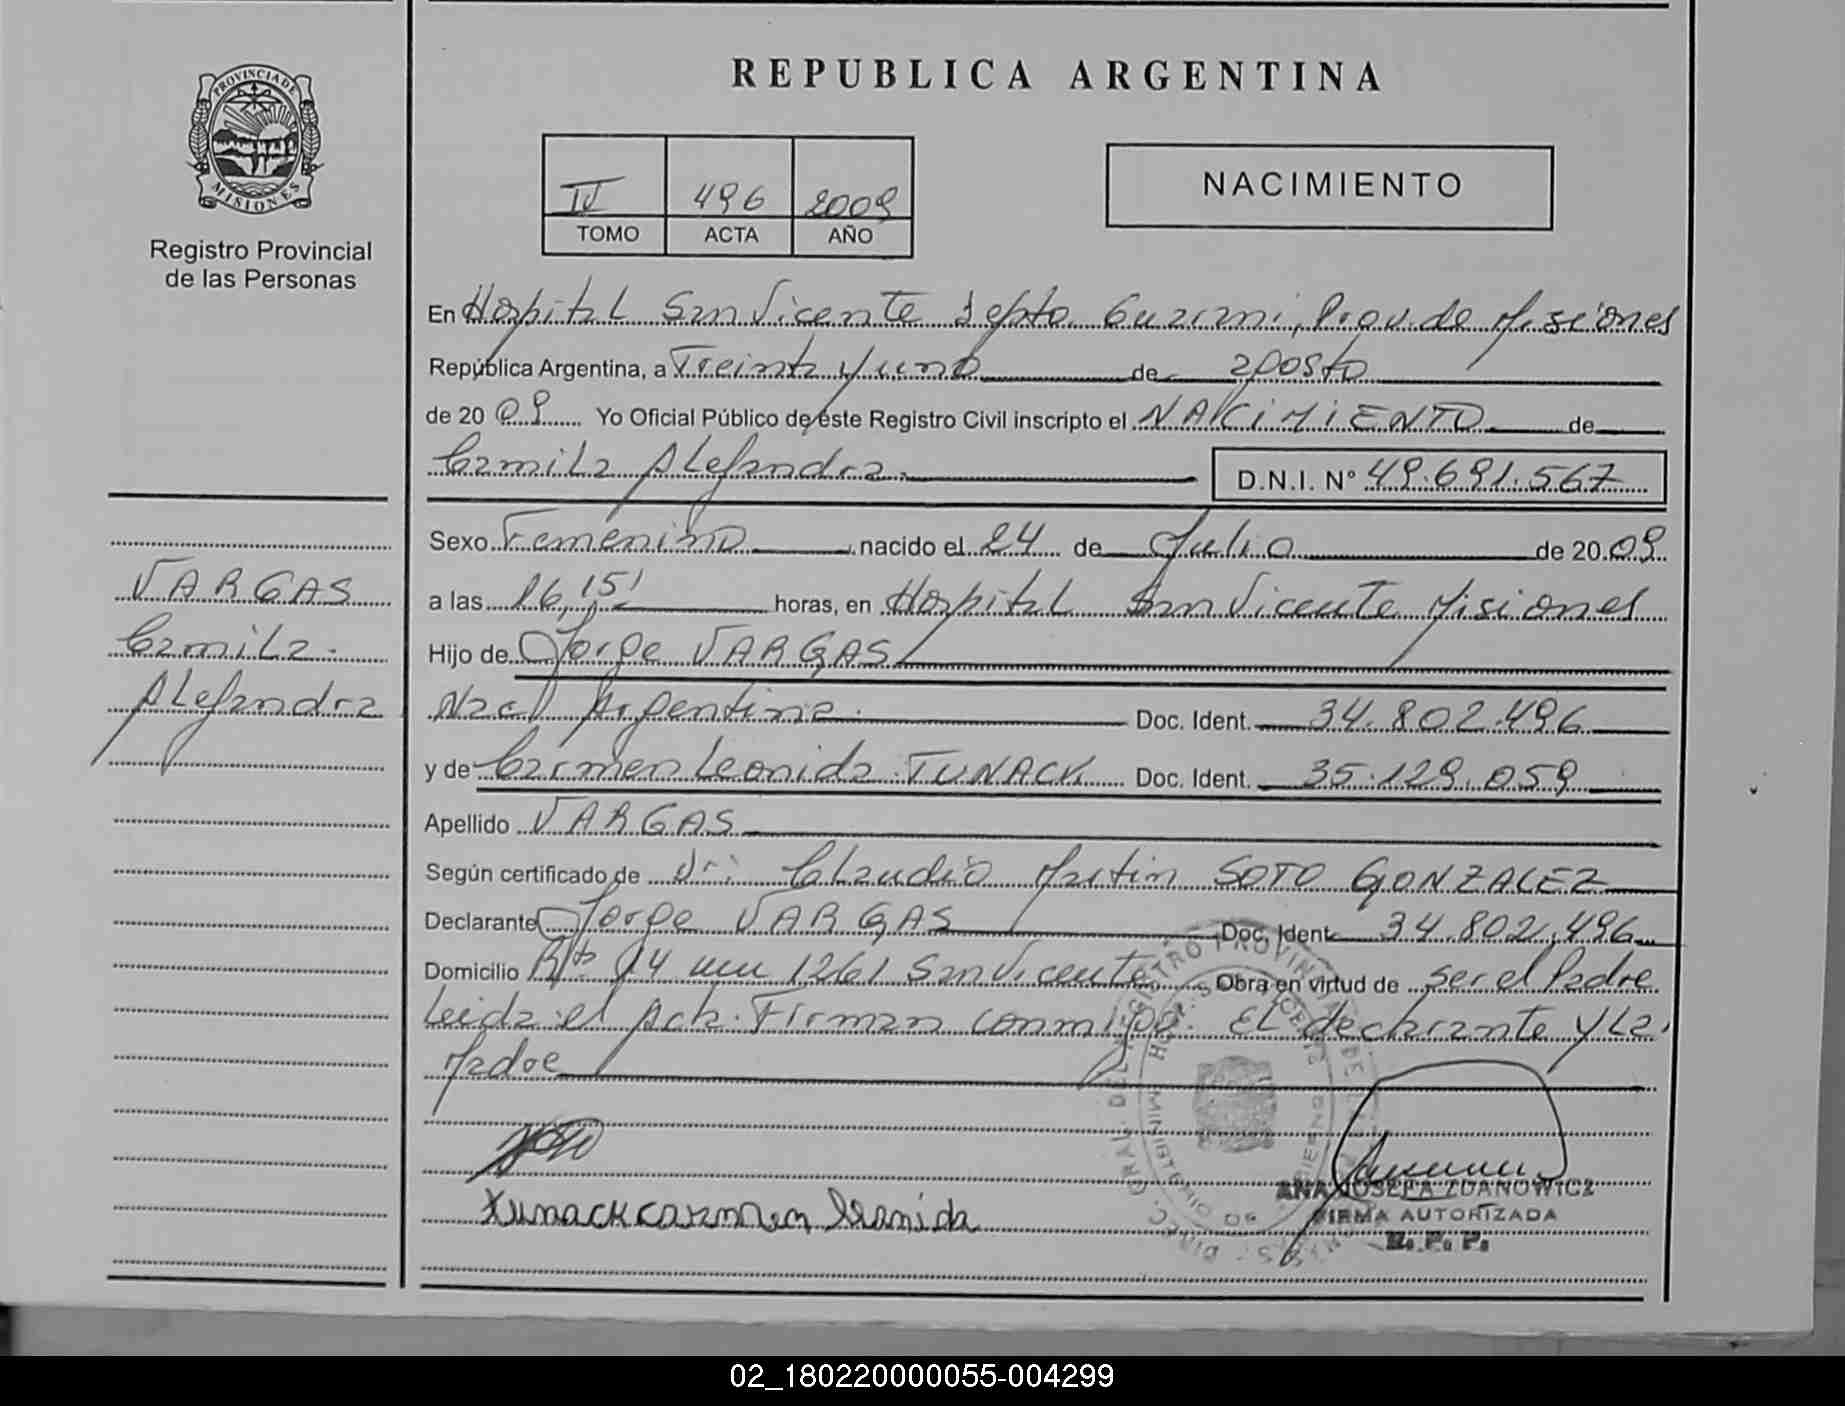 REPUBLICA ARGENTINA
PROVINCIA DE
MISIONES
Registro Provincial
de las Personas
IV 496 2009
TOMO ACTA AÑO
NACIMIENTO
En Hospital San Vicente Depto Guarani, Prov. de Misiones
República Argentina, a Treinta y uno de agosto
de 20 09 Yo Oficial Público de éste Registro Civil inscripto el NACIMIENTO de
Camila Alejandra D.N.I. Nº 49.691.567
Sexo Femenino nacido el 24 de Julio de 20 09
a las 16,15 horas, en Hospital San Vicente Misiones
Hijo de Jorge VARGAS
Nac. Argentina Doc. Ident. 34.802.496
y de Carmen Leonida TUNACK Doc. Ident. 35.129.059
Apellido VARGAS
Según certificado de Dr: Claudio Martin SOTO GONZALEZ
Declarante Jorge VARGAS Doc. Ident. 34.802.496
Domicilio Rta 14 km 1261 San Vicente Obra en virtud de ser el Padre
Leida el Acta. Firman conmigo: El declarante y La
Madre
VARGAS
Camila
Alejandra
Tunack Carmen Leonida
ANA JOSEFA ZDANOWICZ
FIRMA AUTORIZADA
R. P. P.
02_180220000055-004299